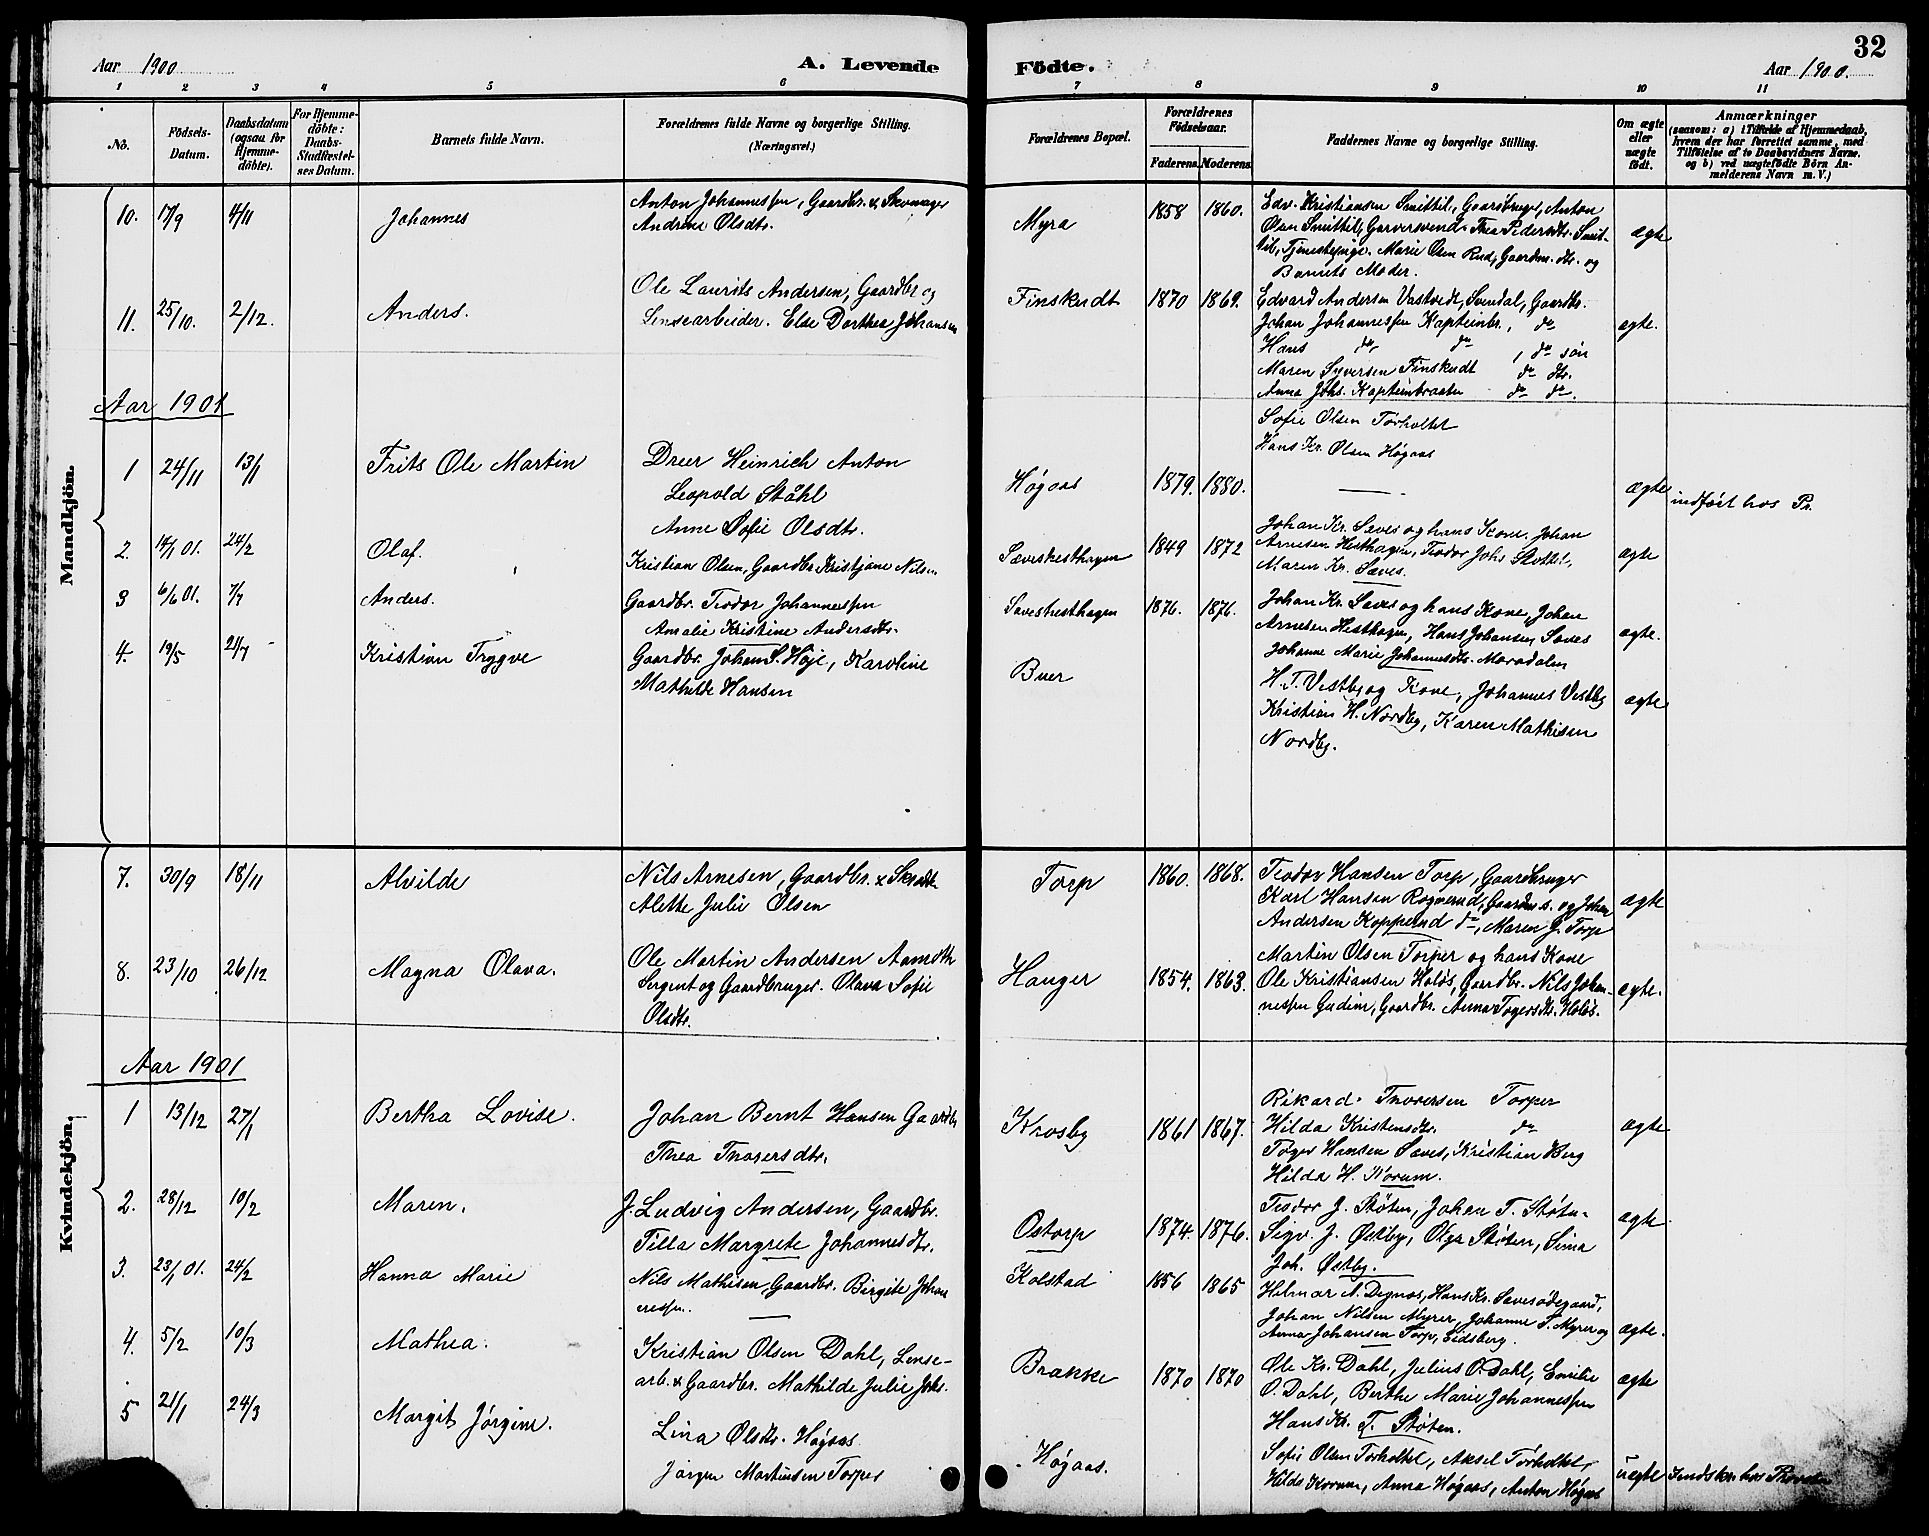 32
Aar 1900
A. Levende Födte.
Aar 1900.
1 2 3 4 5 6 7 8 9 10 11
No.
Födsels-
Datum.
Daabsdatum
(ogsaa for
Hjemme-
döbte).
For Hjemme-
döbte:
Daabs-
Stadfæstel-
ses Datum.
Barnets fulde Navn.
Forældrenes fulde Navne og borgerlige Stilling.
(Næringsvei.)
Forældrenes Bopæl.
Forældrenes
Födselsaar.
Faderens. Moderens.
Faddernes Navne og borgerlige Stilling.
Om ægte
eller
uægte
födt.
Anmærkninger
(saasom: a) i Tilfælde af Hjemmedaab,
hvem der har forrettet samme, med
Tilföielse af to Daabsvidners Navne,
og b) ved uægtefödte Börn An-
melderens Navn m. V.)
Mandkjön.
10. 17/9 4/11 Johannes
Anton Johannessen, Gaardbr. & Skomager
Andrine Olsdtr.
Myra 1858 1860.
Edv. Kristiansen Smittil, Gaardbruger, Anton
Olsen Smittil, Garversvend. Thea Pedersdtr. Smit-
til, Tjenestepige. Marie Olsen Rud, Gaardm. dtr. og
Barnets Moder.
ægte
11. 25/10. 2/12. Anders.
Ole Laurits Andersen, Gaardbr og
Lensearbeider. Else Dorthea Johansen
Finskudt 1870 1869.
Edvard Andersen Vastvedt, Svendal, Gaardbr.
Johan Johannessen Kapteinbr., do
Hans do do, do søn
Maren Syversen Finskudt do dtr.
Anna Johs. Kapteinbraaten do do.
ægte.
Aar 1901
1 24/11 13/1 Frits Ole Martin
Dreer Heinrich Anton
Leopold Ståhl
Anne Sofie Olsdtr.
Høgaas 1879. 1880.
Sofie Olsen Torholtet
Hans Kr. Olsen Høgaas
ægte indført hos Pr.
2. 14/1 01. 24/2 Olaf.
Kristian Olsen, Gaardbr. Kristjane Nilsen
Sæveshesthagen 1849 1872
Johan Kr. Sæves og hans Kone, Johan
Arnesen Hesthagen, Teodor Johs Slottet,
Maren Kr. Sæves.
ægte
3 6/6 01. 7/7 Anders.
Gaardbr. Teodor Johannessen
Amalie Kristine Andersdtr.
Saveshesthagen 1876. 1876.
Johan Kr. Sæves og hans Kone, Johan
Arnesen Hesthagen, Hans Johansen Sæves
Johanne Marie Johannesdtr. Morsdalen
ægte.
4. 19/5 21/7 Kristian Trygve
Gaardbr. Johan S. Høje, Karoline
Mathilde Hansen
Buer
H. T. Vestby og Kone, Johannes Vestby
Kristian H. Nordby, Karen Mathisen
Nordby.
ægte
Kvindekjön.
7. 30/9 18/11 Alvilde
Nils Arnesen, Gaardbr. &
Alette Julie Olsen
Torp 1860. 1868.
Teodor Hansen Torp, Gaardbruger
Karl Hansen Rognerud, Gaardm s. og Johan
Andersen Kopperud do, Maren G. Torp
ægte
8. 23/10 26/12 Magna Olava.
Ole Martin Andersen Aamodt
Sergent og Gaardbruger. Olava Sofie
Olsdtr.
Hauger 1854. 1863.
Martin Olsen Torper og hans Kone
Ole Kristiansen Holøs, Gaardbr. Nils Johan-
nessen Gudim, Gaardbr. Anna Tøgersdtr. Holøs.
ægte.
Aar 1901
1 13/12 27/1 Bertha Lovise.
Johan Bernt Hansen Gaardbr
Thea Thorersdtr.
Krosby 1861 1867.
Rikard Thoresen Torper
Hilda Kristensdtr. do
Tøger Hansen Sæves, Kristian Berg
Hilda H. Korum.
ægte
2. 28/12 10/2 Maren.
J. Ludvig Andersen, Gaardbr.
Tilla Margrete Johannesdtr.
Ostorp 1874. 1876.
Teodor J. Støten, Johan T. Støten
Sigv. J. Østby, Olga Støten, Sina
Joh. Østby.
ægte
3. 23/1 01. 24/2 Hanna Marie
Nils Mathisen, Gaardbr. Birgite Johan
nessen.
Kolstad 1856 1865
Hilmar A. Degnes, Hans Kr. Sævesødegaard,
Johan Nilsen Myrer, Johanne T. Myrer og
Anna Johansen Torp, Eidsberg.
ægte.
4. 5/2 10/3 Mathea.
Kristian Olsen Dahl, Lense-
arb. & Gaardbr. Mathilde Julie Johs.
Brakke 1870 1870
Ole Kr. Dahl, Julius O. Dahl, Emilie
O. Dahl, Berthe Marie Johannessen
Hans Kr. T. Støten.
ægte
5 21/1 24/3 Margit Jørgine.
Lina Olsdtr. Høgaas
Jørgen Martinsen Torper
Høgaas.
Sofie Olsen Torholtet, Aksel Torholtet,
Hilda Korum, Anna Høgaas, Anton Høgaas
uægte